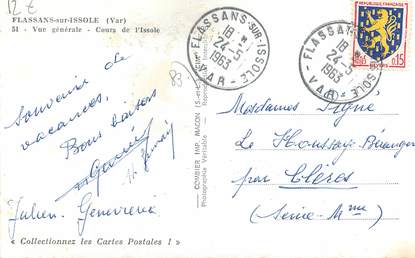 12 €
FLASSANS-sur-ISSOLE (Var)
51 - Vue générale - Cours de l'Issole
Souvenir de
vacances,
Bons baisers
Julien. Geneviève
« Collectionnez les Cartes Postales ! »
83
COMBIER IMP. MACON
Photographie Véritable
FLASSANS-SUR-ISSOLE
18 H
24-5
1963
VAR
FLASSANS
ISSOLE
18
24-5
1963
VAR
REPUBLIQUE FRANÇAISE
0,15
Mesdames
Le Houssaye-Béranger
par Clères
(Seine-Mme)